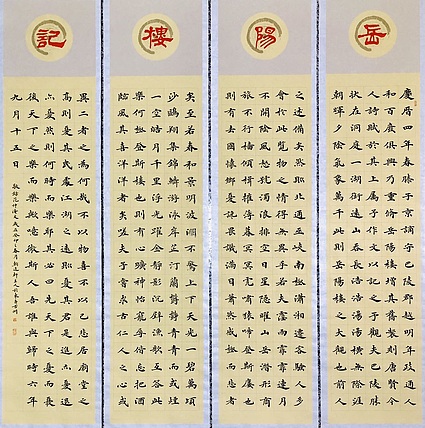 岳
慶曆四年春滕子京謫守巴陵郡越明年政通人
和百廢俱興乃重修岳陽樓增其舊制刻唐賢今
人詩賦於其上屬予作文以記之予觀夫巴陵勝
狀在洞庭一湖銜遠山吞長江浩浩湯湯橫無際涯
朝暉夕陰氣象萬千此則岳陽樓之大觀也前人
陽
之述備矣然則北通巫峽南極瀟湘遷客騷人多
會於此覽物之情得無異乎若夫霪雨霏霏連月
不開陰風怒號濁浪排空日星隱曜山岳潛形商
旅不行檣傾楫摧薄暮冥冥虎嘯猿啼登斯樓也
則有去國懷鄉憂讒畏譏滿目蕭然感極而悲者
樓
矣至若春和景明波瀾不驚上下天光一碧萬頃
沙鷗翔集錦鱗游泳岸芷汀蘭鬱鬱青青而或煙
一空皓月千里浮光耀金靜影沉璧漁歌互答此
樂何極登斯樓也則有心曠神怡寵辱偕忘把酒
臨風其喜洋洋者矣嗟夫予嘗求古仁人之心或
記
異二者之為何哉不以物喜不以己悲居廟堂之
高則憂其民處江湖之遠則憂其君是進亦憂退
亦憂然則何時而樂耶其必曰先天下之憂而憂
後天下之樂而樂歟噫微斯人吾誰與歸時六年
九月十五日